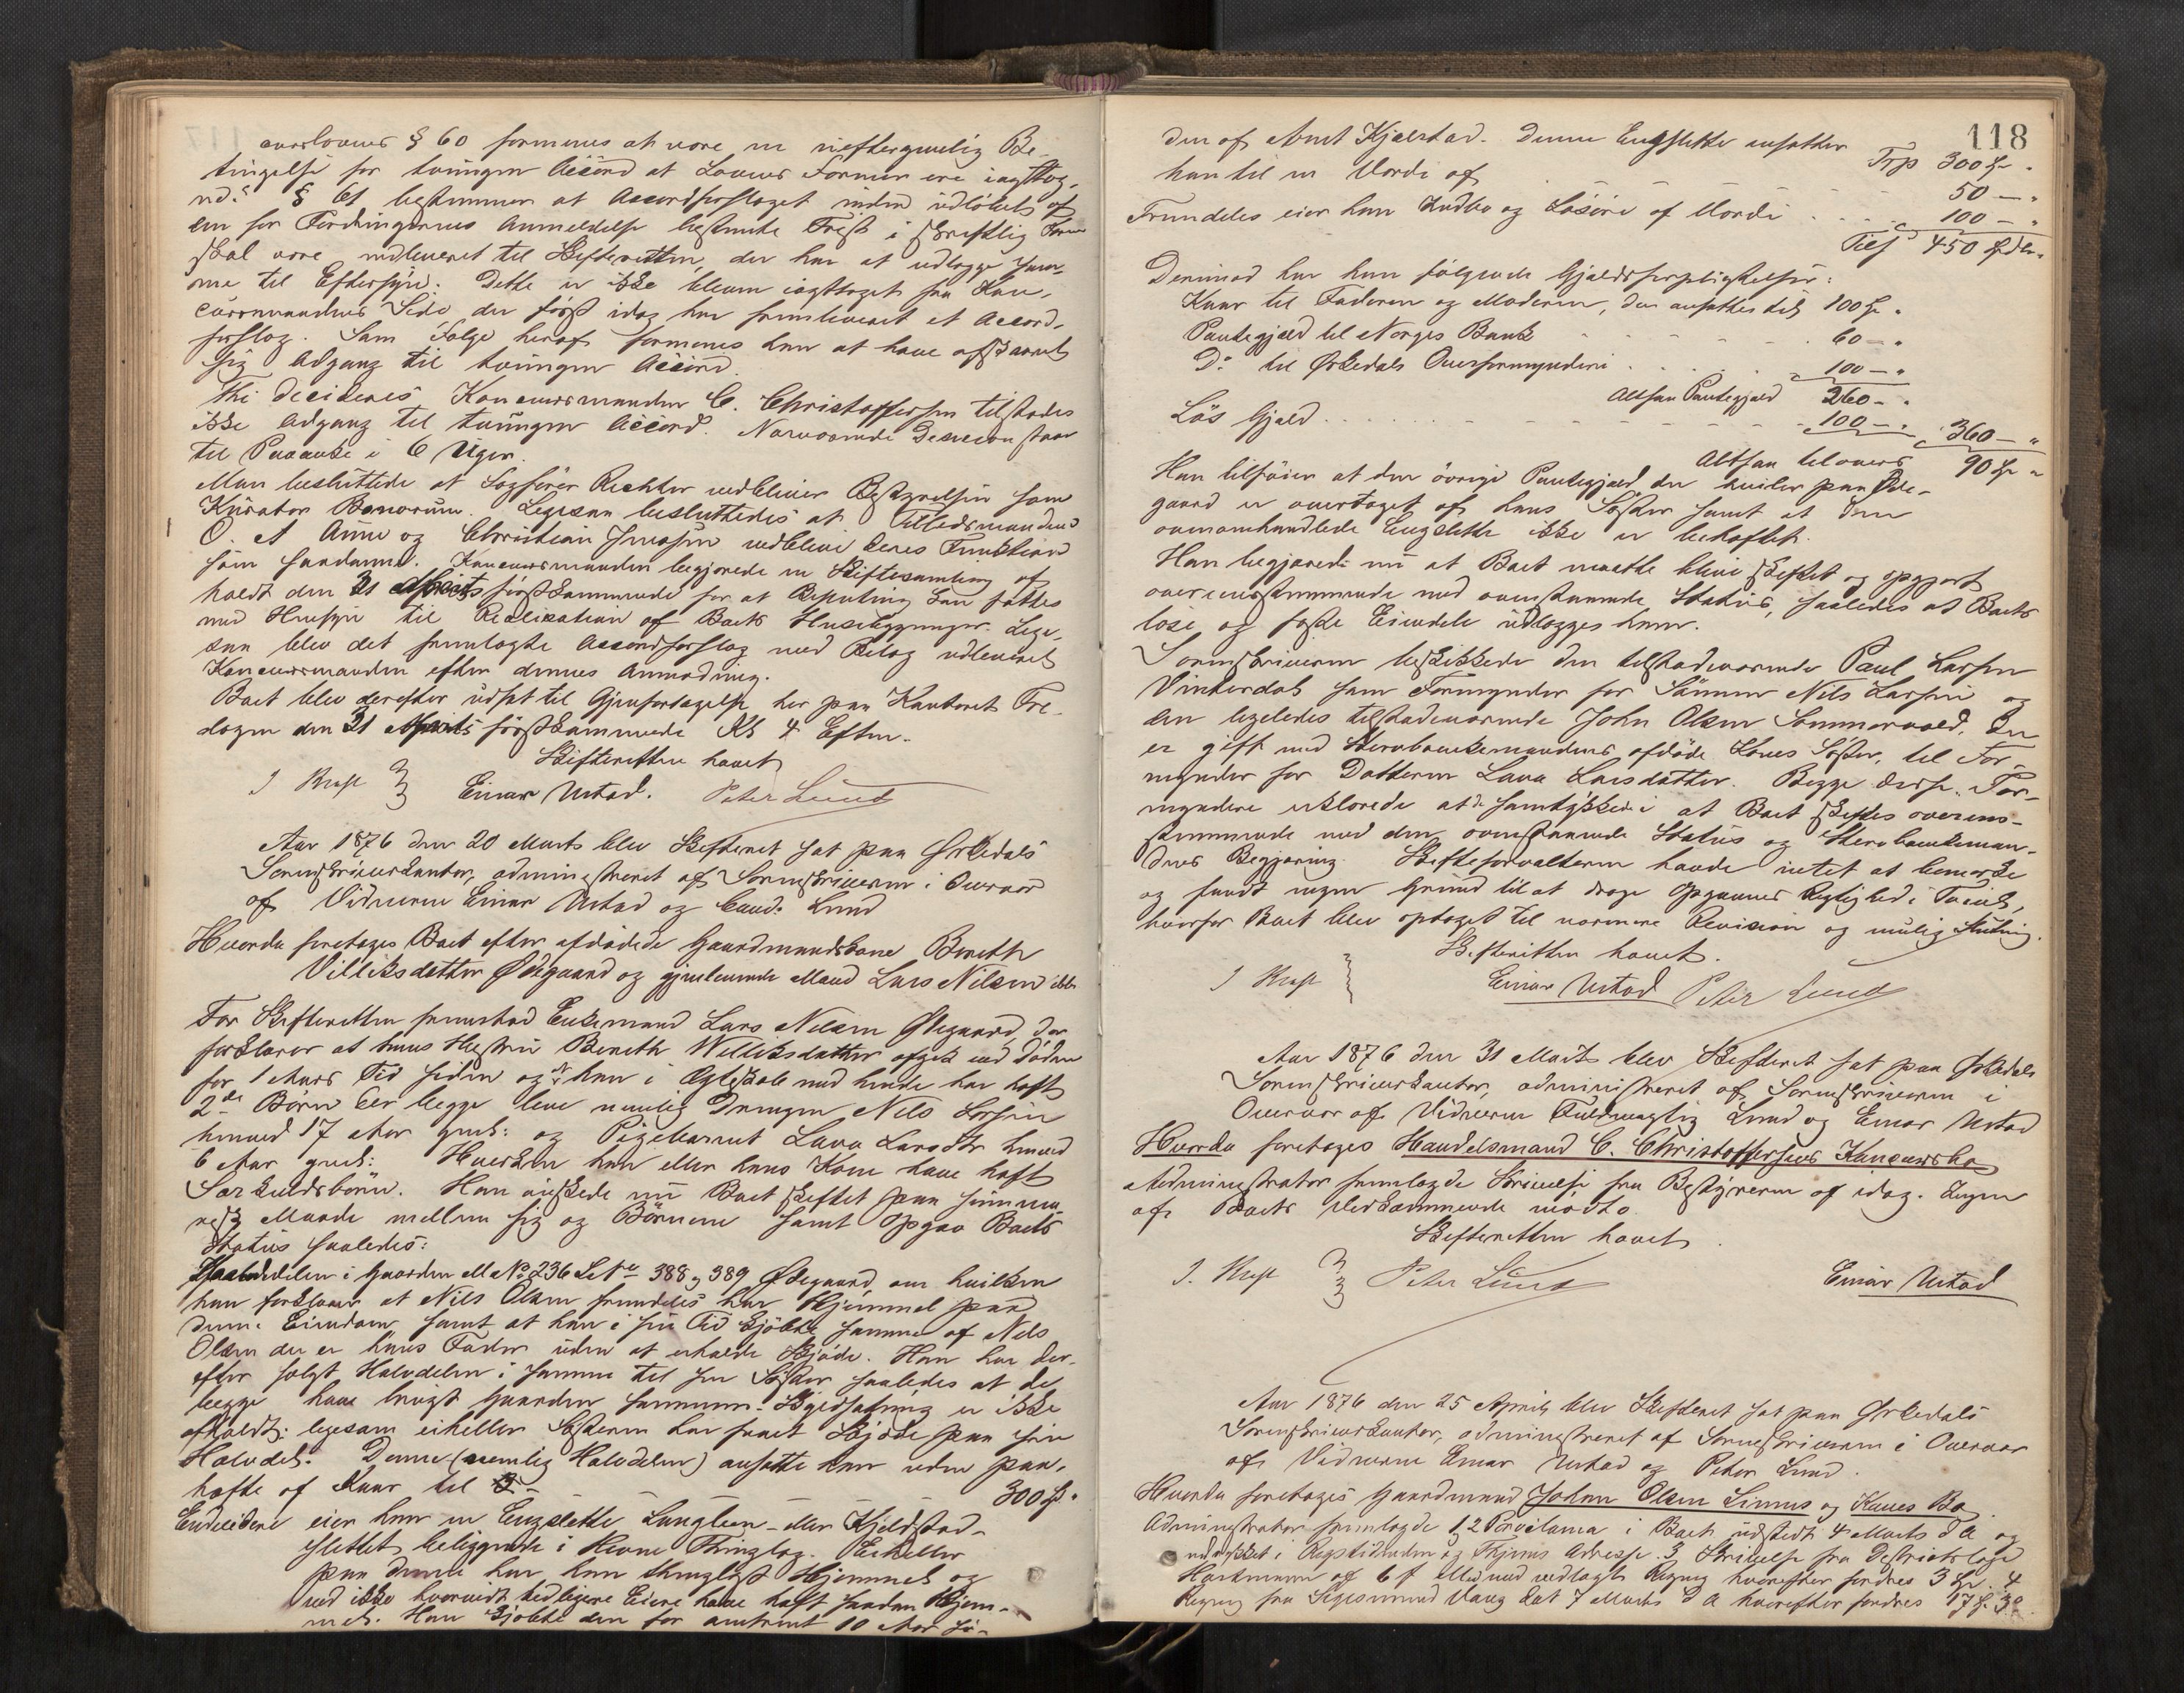 curslovens § 60 formenes at være en ueftergivelig Be-
tingelse for tvungen Accord at Lovens Former ere iagttag-
ne. § 61 bestemmer at Accordforslaget inden Udløbet af
den for Fordringernes Anmeldelse bestemte Frist i skriftlig Form
skal være indleveret til Skifteretten, der har at udlægge sam-
me til Eftersyn. Dette er ikke bleven iagttaget fra Kon-
cursmandens Side, der først idag har fremleveret et Accord-
forslag. Som Følge heraf formenes han at have afskaaret
sig Adgang til tvungen Accord.
Thi decideres Koncursmanden C. Christoffersen tilstedes
ikke Adgang til tvungen Accord. Nærværende Decision staar
til Paaanke i 6 Uger.
Man besluttede at Sagfører Richter vedbliver Bestyrelsen som
Kurator Bonorum. Ligesaa besluttedes at Tillidsmændene
O. A Aune og Christian Jenssen vedblive deres Funktion
som saadanne. Koncursmanden begjærede en Skiftesamling af-
holdt den 31 Marts førstkommende for at Beslutning kan fattes
med Hensyn til Realisation af Boets Husebygninger. Lige-
saa blev det fremlagte Accordforslag med Bilag udleveret
Koncursmanden efter dennes Anmodning.
Boet blev derefter udsat til Gjenforetagelse her paa Kontoret Fre-
dagen den 31 Marts førstkommende Kl 4 Efterm.
Skifteretten hævet
J Krefl Einar Ustad. Peter Lund
Aar 1876 den 20 Marts blev Skifteret sat paa Ørkedals
Sorenskriverkontor, administreret af Sorenskriveren i Overvær
af Vidnerne Einar Ustad og Cand. Lund
Hvorda foretages Boet efter afdøde Gaardmandskone Bereth
Villiksdatter Ødegaard og gjenlevende Mand Lars Nilsen ibd.
For Skifteretten fremstod Enkemand Lars Nilsen Ødegaard, der
forklarer at hans Hustru Bereth Willeksdatter afgik ved Døden
for 1 Aars Tid siden og at han i Ægteskab med hende har havt
2de Børn der begge leve nemlig Drengen Nils Larsen
henved 17 Aar gml: og Pigebarnet Lava Larsdtr henved
6 Aar gml: Hverken han eller hans Kone have havt
Særkuldsbørn. Han ønskede nu Boet skiftet paa summa-
risk Maade mellem sig og Børnene samt opgav Boets
Status saaledes:
Halvdelen i Gaarden M No 236 L No 388 & 389 Ødegaard, om hvilken
han forklarer at Nils Olsen fremdeles har Hjemmel paa
denne Eiendom samt at han i sin Tid kjøbte samme af Nils
Olsen der er hans Fader uden at erholde Skjøde. Han har der-
efter solgt Halvdelen i samme til sin Søster saaledes at de
begge have brugt Gaarden sammen. Skyldsætning er ikke
afholdt; ligesom eiheller Søsteren har faaet Skjøde paa sin
Halvdel. Denne (nemlig Halvdelen) ansatte han uden paa-
hæfte af Kaar til 300 Sp.
Endvidere eier han en Engslette Langlien eller Kjeldstad-
slettet beliggende i Hevne Thinglag. Eiheller
paa denne har han thinglyst Hjemmel og
ved ikke hvorvidt tidligere Eiere have havt saadan Hjem-
mel. Han kjøbte den for omtrent 10 Aar si-
118
den af Arnt Kjelstad. Denne Engslette ansætter Trp 300 Sp "
han til en Værdi af 50 — "
Fremdeles eier han Indbo og Løsøre af Værdi . . . 100 — "
Tils 450 Spdlr
Derimod har han følgende Gjældsforpligtelser:
Kaar til Faderen og Moderen, der ansættes til 100 Sp "
Pantegjæld til Norges Bank 60 — "
Do til Ørkedals Overformynderi . . . . 100 — "
Altsaa Pantegjæld 260 — "
Løs Gjæld . . . . 100 — " 360 — "
Altsaa tilovers 90 Sp "
Han tilføier at den øvrige Pantegjæld der hviler paa Øde-
gaard er overtaget af hans Søster samt at den
ovenomhandlede Engslette ikke er behæftet.
Han begjærede nu at Boet maatte blive skiftet og opgjort
overensstemmende med ovenstaaende Status, saaledes at Boets
løse og faste Eiendele udlægges ham.
Sorenskriveren beskikkede den tilstedeværende Paul Larsen
Vinterdal som Formynder for Sønnen Nils Larsen og
den ligeledes tilstedeværende John Olsen Sommervold, der
er gift med Stervboenkemandens afdøde Kones Søster, til For-
mynder for Datteren Lava Larsdatter. Begge disse For-
myndere erklærede at de samtykkede i at Boet skiftes overens-
stemmende med den ovenstaaende Status og Stervboenkeman-
dens Begjæring. Skifteforvalteren havde intet at bemærke
og fandt ingen Grund til at drage Opgavens Rigtighed i Tvivl,
hvorfor Boet blev optaget til nærmere Revision og mulig Slutning.
Skifteretten hævet.
J Krefl Einar Ustad Peter Lund
Aar 1876 den 31 Marts blev Skifteret sat paa Ørkedals
Sorenskriverkontor, administreret af Sorenskriveren i
Overvær af Vidnerne Fuldmægtig Lund og Einar Ustad
Hvorda foretages Handelsmand C. Christoffersens Koncursbo
Administrator fremlagde Skrivelse fra Bestyreren af idag. Ingen
af Boets Vedkommende mødte.
Skifteretten hævet.
J. Krefl Peter Lund Einar Ustad
Aar 1876 den 25 April blev Skifteret sat paa Ørkedals
Sorenskriverkontor, administreret af Sorenskriveren i Overvær
af Vidnerne Einar Ustad og Peter Lund.
Hvorda foretages Gaardmand Johan Olsen Linnes og Kones Bo
Administrator fremlagde 1, 2 Proclama i Boet udstedt 4 Marts d A og
indrykket i Rigstidenden og Thjems Adresse. 3 Skrivelse fra Distriktslæge
Hartmann af 6 f Md med vedlagt Regning hvorefter fordres 3 Sp. 4
Regning fra Sigismund Vang dat 7 Marts d A hvorefter fordres 17 Sp. 3